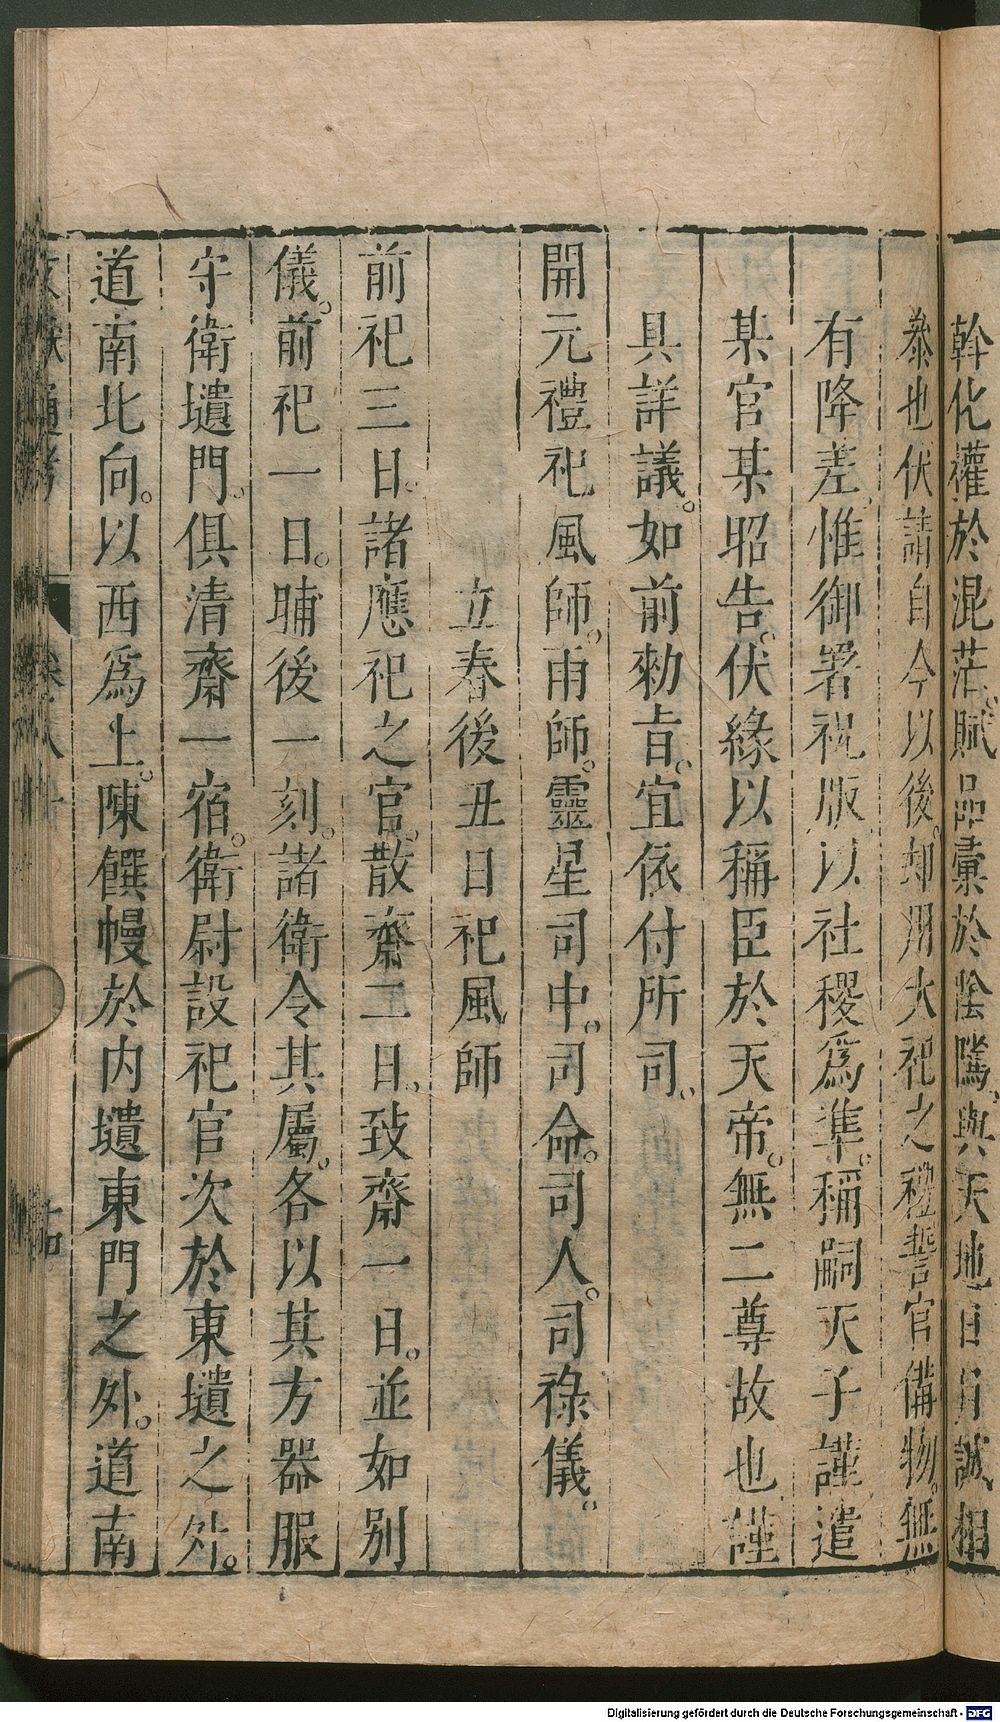 幹化權於混茫。賦品彙於陰隲。與天地日月誠相
叅也伏請自今以後。却用大祀之禮誓官備物。無
有降差。惟御署祝版以社稷爲準。稱嗣天子謹遣
某官某昭告。伏緣以稱臣於天帝。無二尊故也謹
具詳議。如前勑旨。宜依付所司。
開元禮祀風師。雨師。靈星司中。司命。司人。司祿儀。
立春後丑日祀風師
前祀三日。諸應祀之官。散齋二日。致齋一日。並如別
儀。前祀一日。晡後一刻。諸衛令其屬。各以其方器服
守衛壝門。俱清齋一宿。衛尉設祀官次於東壝之外。
道南北向。以西爲上。陳饌幔於内壝東門之外。道南
文獻通考
卷八十
十四
Digitalisierung gefördert durch die Deutsche Forschungsgemeinschaft - DFG